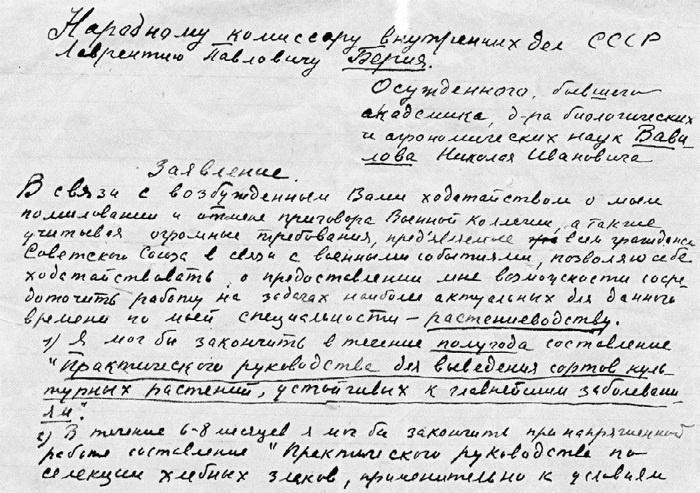 Народному комиссару внутренних дел СССР
Лаврентию Павловичу Берия.
Осужденного, бывшего
академика, д-ра биологических
и агрономических наук Вави-
лова Николая Ивановича
Заявление.
В связи с возбужденным Вами ходатайством о моем
помиловании и отмене приговора Военной Коллегии, а также
учитывая огромные требования, предъявляемые всем гражданам
Советского Союза в связи с военными событиями, позволяю себе
ходатайствовать о предоставлении мне возможности сосре-
доточить работу на задачах наиболее актуальных для данного
времени по моей специальности – растениеводству.
1) Я мог бы закончить в течение полугода составление
"Практического руководства для выведения сортов куль-
турных растений, устойчивых к главнейшим заболевани-
ям".
2) В течение 6-8 месяцев я мог бы закончить при напряженной
работе составление "Практического руководства по
селекции хлебных злаков, применительно к условиям